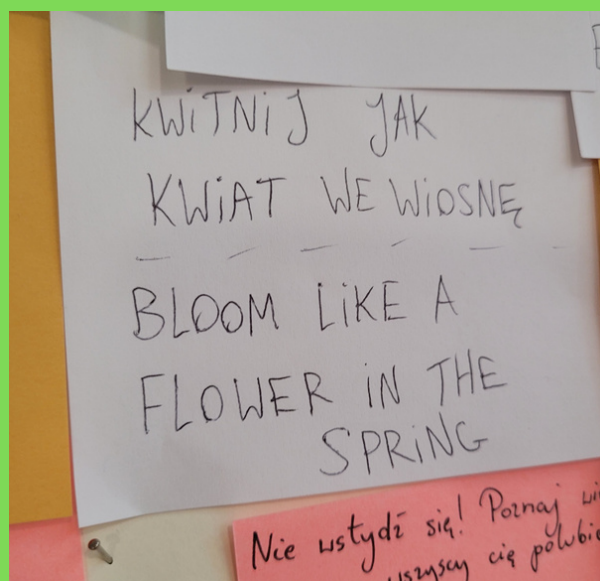 KWiTNiJ JAK
KWiAT WE WiOSNĘ
BLOOM LiKE A
FLOWER iN THE
SPRiNG
Nie wstydź się! Poznaj
wszyscy cię